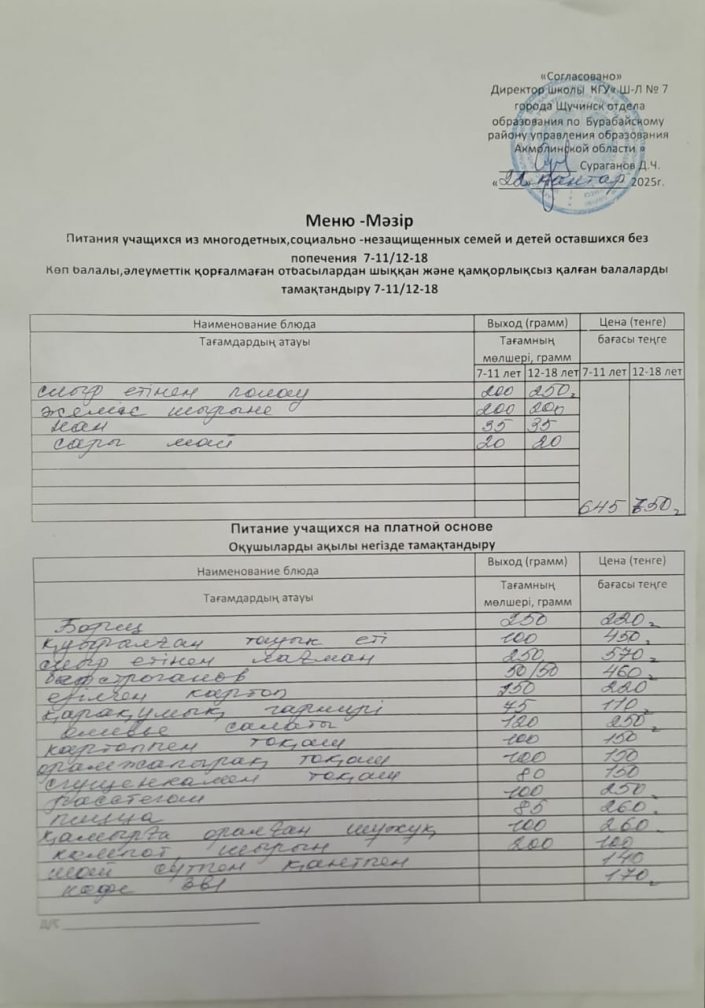 «Согласовано»
Директор школы КГУ« Ш-Л № 7
города Щучинск отдела
образования по Бурабайскому
району управления образования
Акмолинской области »
Сураганов Д.Ч.
« » қаңтар 2025г.
Меню -Мәзір
Питания учащихся из многодетных,социально -незащищенных семей и детей оставшихся без
попечения 7-11/12-18
Көп балалы,әлеуметтік қорғалмаған отбасылардан шыққан және қамқорлықсыз қалған балаларды
тамақтандыру 7-11/12-18
Наименование блюда Выход (грамм) Цена (тенге)
Тағамдардың атауы Тағамның бағасы теңге
мөлшері, грамм
7-11 лет 12-18 лет 7-11 лет 12-18 лет
сиыр етінен полау 200 250
жеміс шырыны 200 200
нан 35 35
сары май 20 20
645 750
Питание учащихся на платной основе
Оқушыларды ақылы негізде тамақтандыру
Наименование блюда Выход (грамм) Цена (тенге)
Тағамдардың атауы Тағамның бағасы теңге
мөлшері, грамм
Борщ 250 220
қуыралған тауық еті 100 450
сиыр етінен лағман 250 570
бефстроганов 50/50 460
езілген картоп 150 220
қарақұмық гарнирі 45 110
оливье салаты 120 250
картоппен тоқаш 100 150
орамжапырақ тоқаш 100 150
сгущенкамен тоқаш 80 150
100 250
пицца 85 260
қамырға оралған шұжық 100 260
компот, шырын 200 100
шай сүтпен қантпен 140
кофе 3в1 170